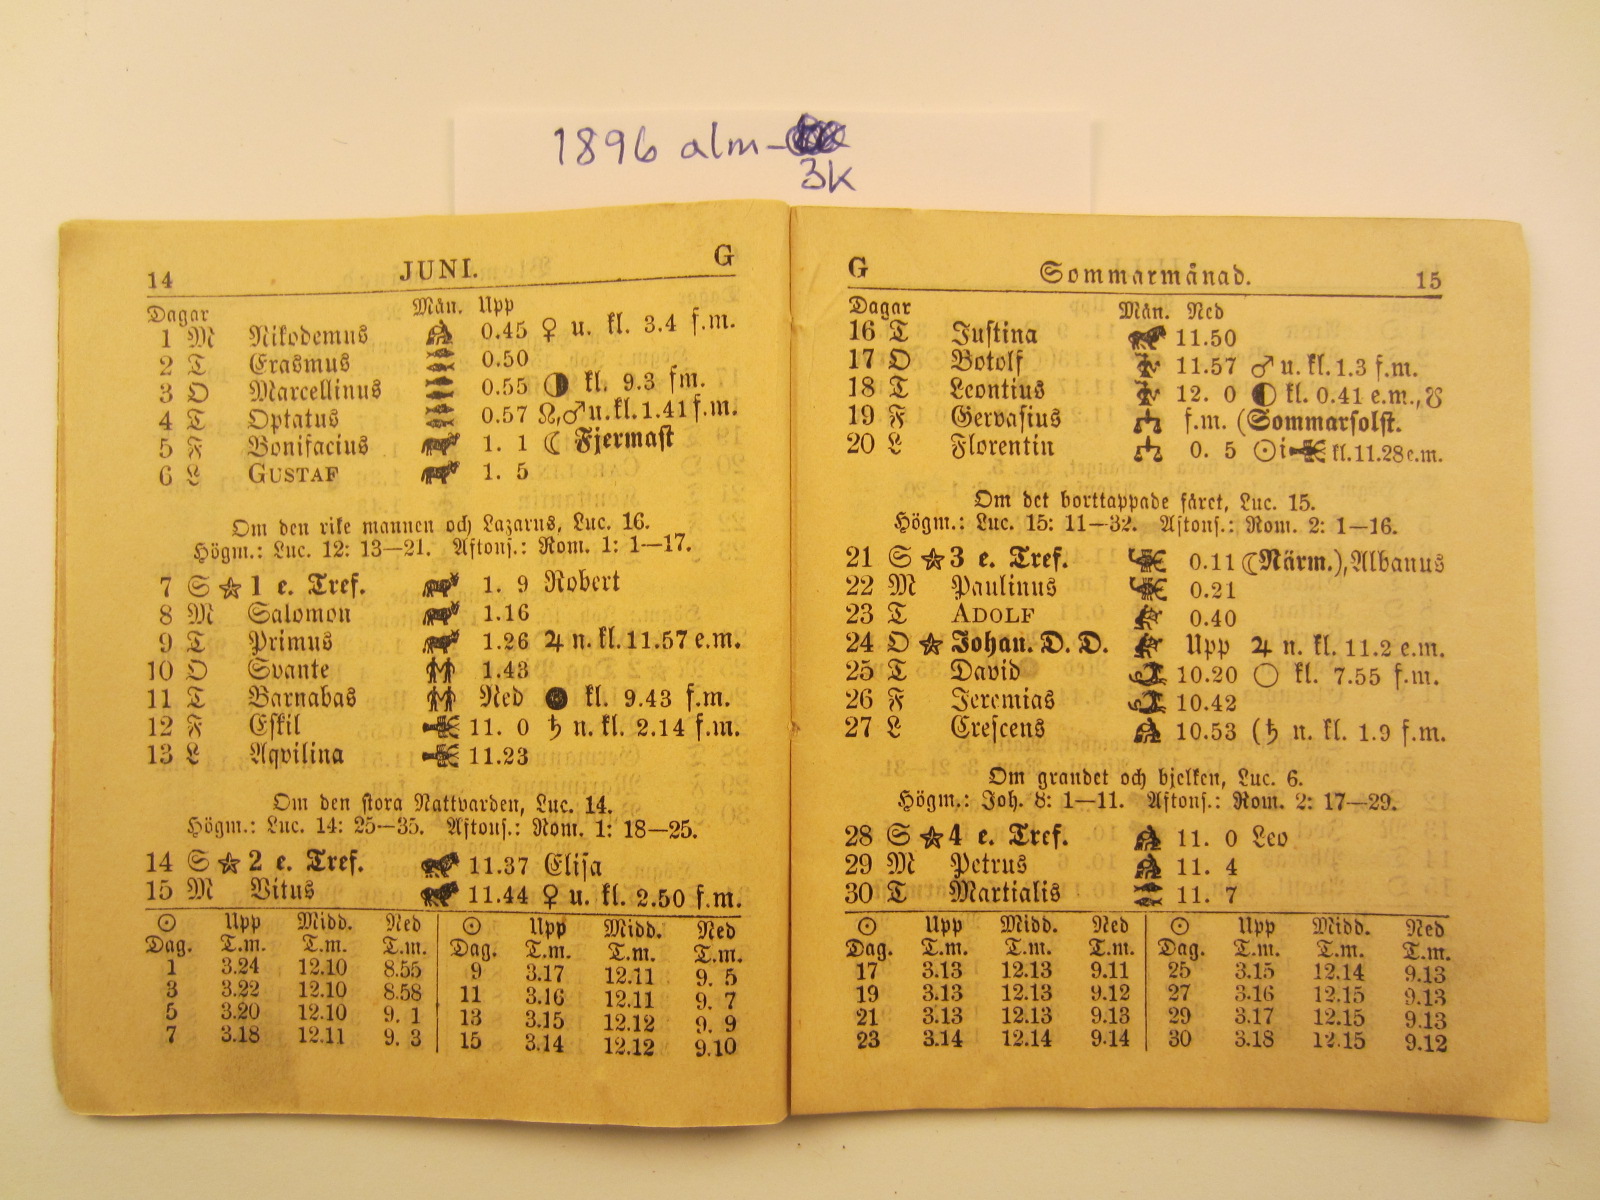 1896 alm-
3k
14 JUNI. G
Dagar Mån. Upp
1 M Nikodemus 0.45 ♀ u. kl. 3.4 f.m.
2 T Erasmus 0.50
3 O Marcellinus 0.55 ◑ kl. 9.3 fm.
4 T Optatus 0.57 ☊,♂u.kl.1.41 f.m.
5 F Bonifacius 1. 1 ☾ Fjermast
6 L GUSTAF 1. 5
Om den rike mannen och Lazarus, Luc. 16.
Högm.: Luc. 12: 13—21. Aftons.: Rom. 1: 1—17.
7 S ★ 1 e. Tref. 1. 9 Robert
8 M Salomon 1.16
9 T Primus 1.26 ♃ n. kl. 11.57 e.m.
10 O Svante 1.43
11 T Barnabas Ned ● kl. 9.43 f.m.
12 F Eskil 11. 0 ♄ n. kl. 2.14 f.m.
13 L Aqvilina 11.23
Om den stora Nattvarden, Luc. 14.
Högm.: Luc. 14: 25—35. Aftons.: Rom. 1: 18—25.
14 S ★ 2 e. Tref. 11.37 Elisa
15 M Vitus 11.44 ♀ u. kl. 2.50 f.m.
☉ Upp Midd. Ned ☉ Upp Midd. Ned
Dag. T.m. T.m. T.m. Dag. T.m. T.m. T.m.
1 3.24 12.10 8.55 9 3.17 12.11 9. 5
3 3.22 12.10 8.58 11 3.16 12.11 9. 7
5 3.20 12.10 9. 1 13 3.15 12.12 9. 9
7 3.18 12.11 9. 3 15 3.14 12.12 9.10
G Sommarmånad. 15
Dagar Mån. Ned
16 T Justina 11.50
17 O Botolf 11.57 ♂ u. kl. 1.3 f.m.
18 T Leontius 12. 0 ◐ kl. 0.41 e.m., ☋
19 F Gervasius f.m. (Sommarsolst.
20 L Florentin 0. 5 ☉ i kl. 11.28 e.m.
Om det borttappade fåret, Luc. 15.
Högm.: Luc. 15: 11—32. Aftons.: Rom. 2: 1—16.
21 S ★ 3 e. Tref. 0.11 (☾Närm.), Albanus
22 M Paulinus 0.21
23 T ADOLF 0.40
24 O ★ Johan. D. D. Upp ♃ n. kl. 11.2 e.m.
25 T David 10.20 ○ kl. 7.55 f.m.
26 F Jeremias 10.42
27 L Crescens 10.53 (♄ n. kl. 1.9 f.m.
Om grandet och bjelken, Luc. 6.
Högm.: Joh. 8: 1—11. Aftons.: Rom. 2: 17—29.
28 S ★ 4 e. Tref. 11. 0 Leo
29 M Petrus 11. 4
30 T Martialis 11. 7
☉ Upp Midd. Ned ☉ Upp Midd. Ned
Dag. T.m. T.m. T.m. Dag. T.m. T.m. T.m.
17 3.13 12.13 9.11 25 3.15 12.14 9.13
19 3.13 12.13 9.12 27 3.16 12.15 9.13
21 3.13 12.13 9.13 29 3.17 12.15 9.13
23 3.14 12.14 9.14 30 3.18 12.15 9.12